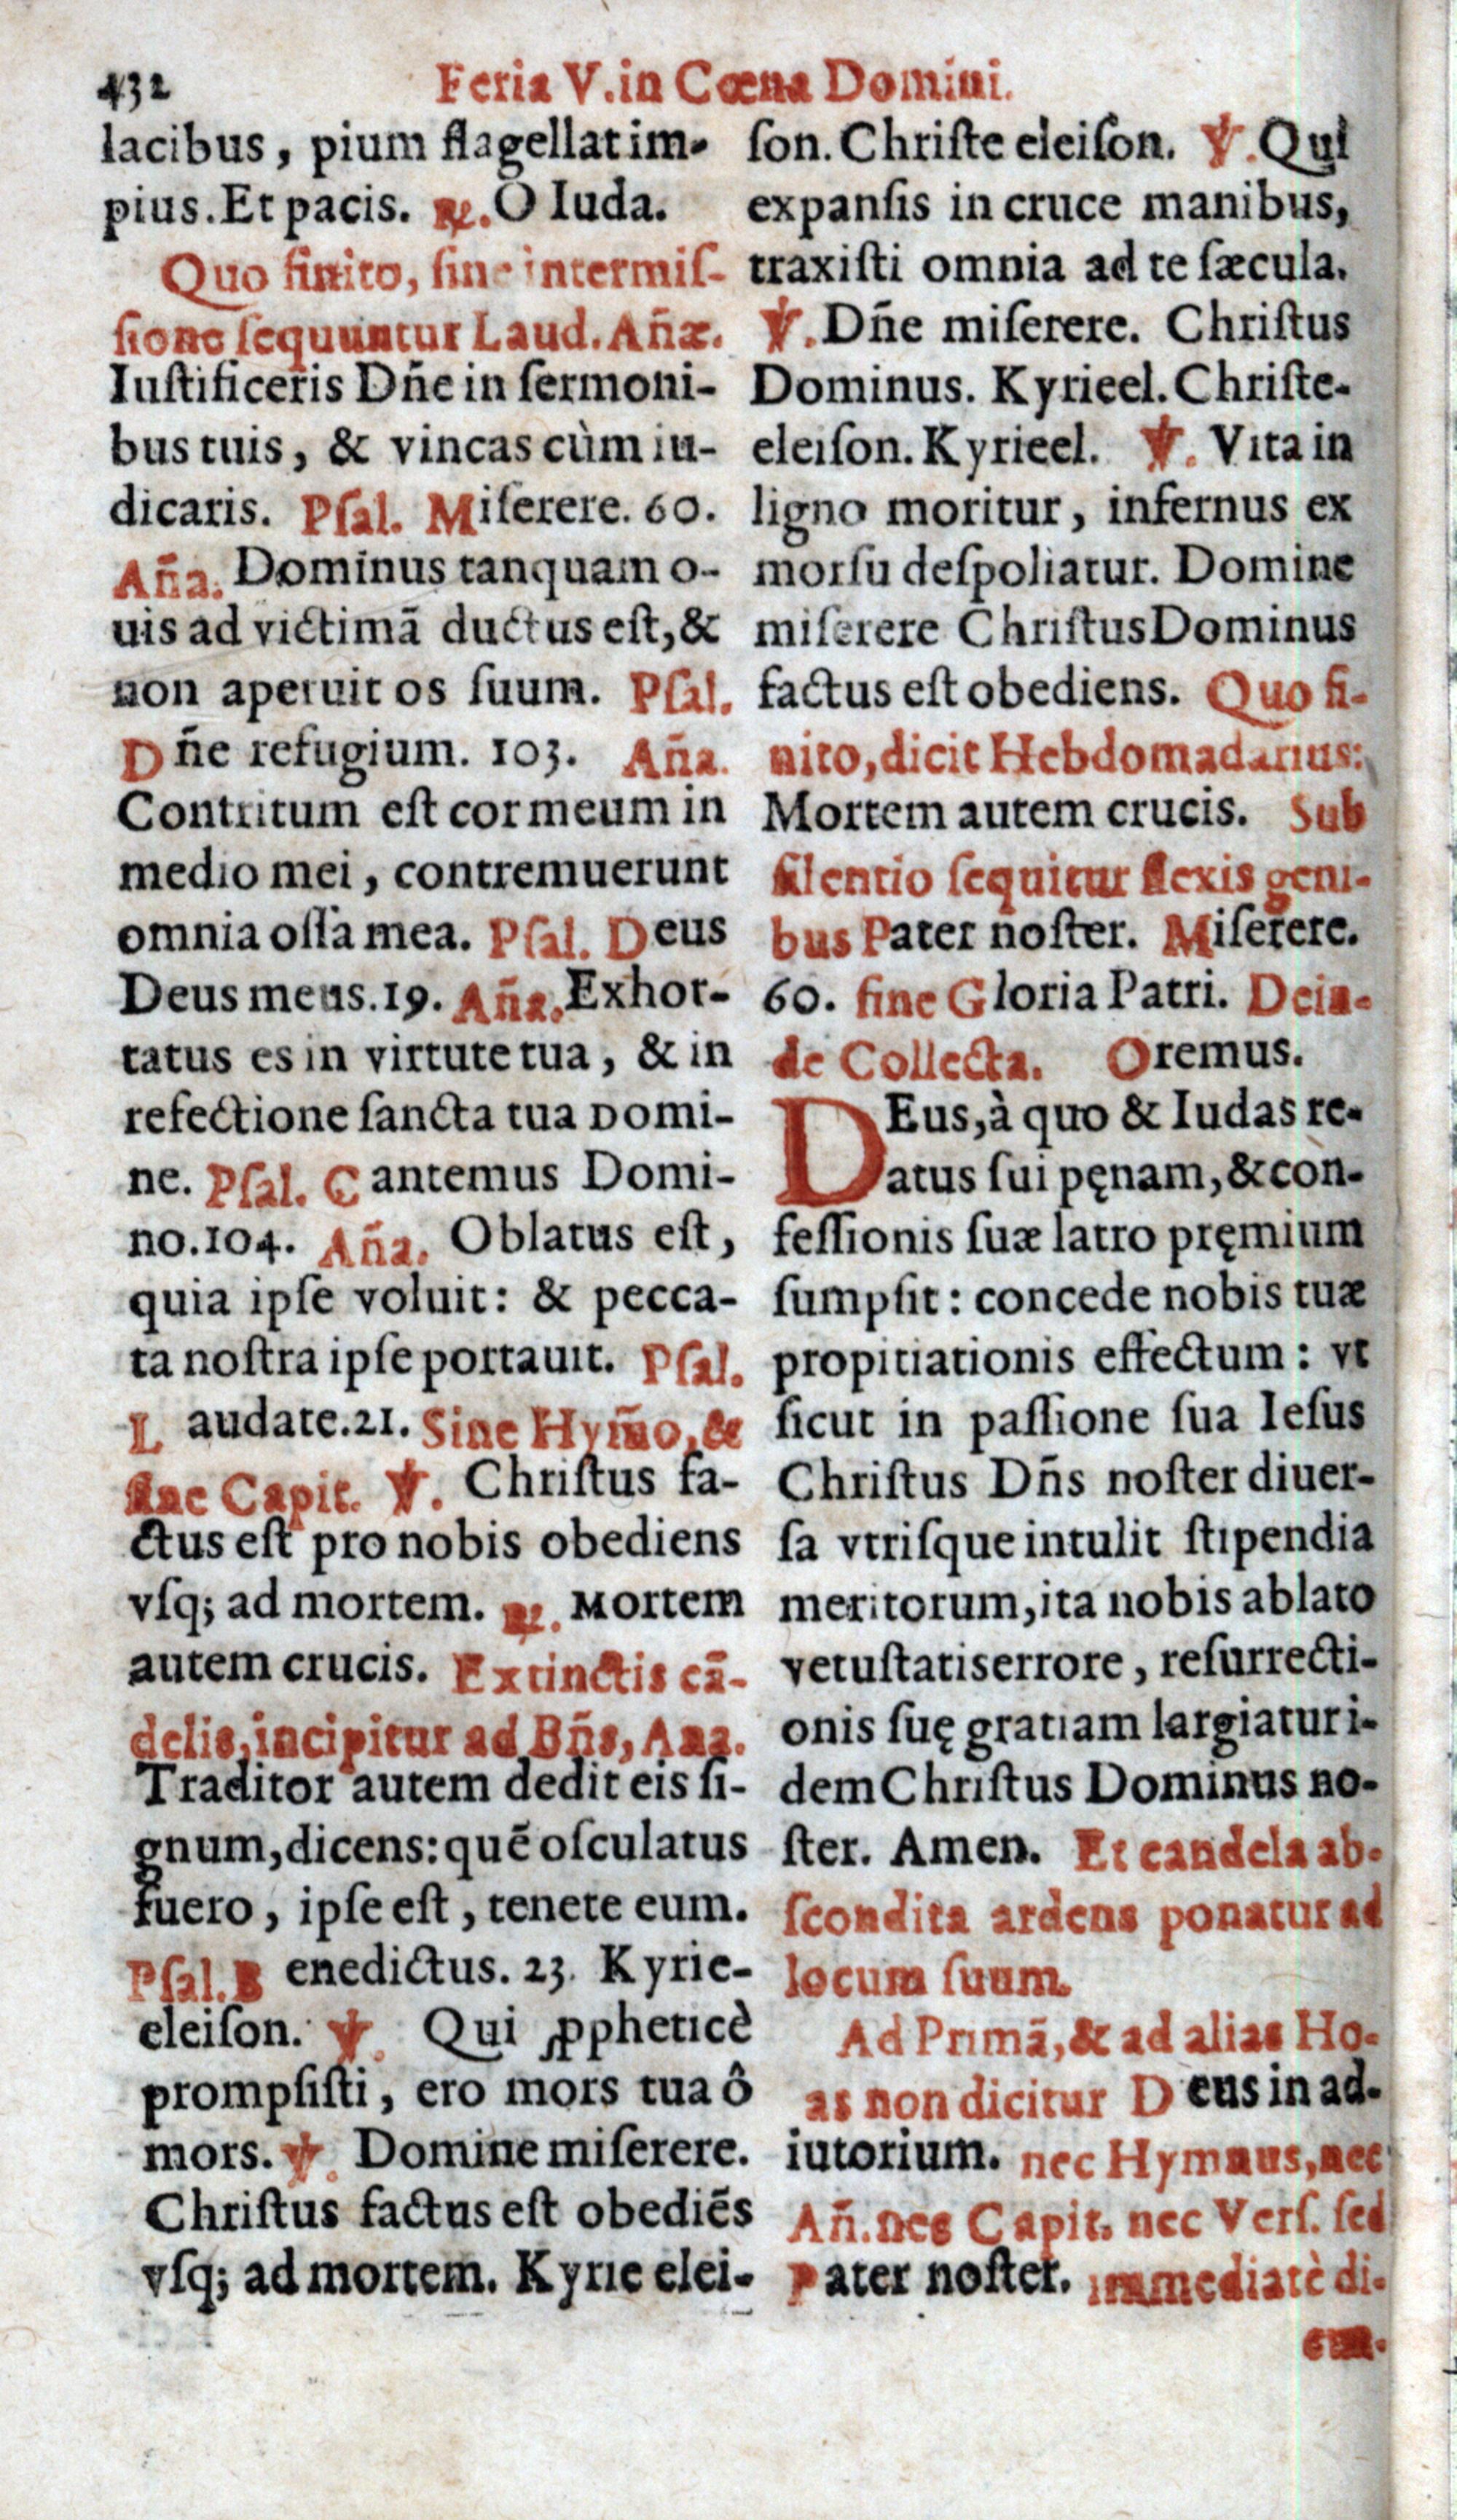 432
Feria V. in Cœna Domini.
lacibus, pium flagellat im-
pius. Et pacis. ℟. O Iuda.
Quo finito, sine intermiſ-
ſione ſequuntur Laud. Añæ.
Iuſtificeris Dñe in ſermoni-
bus tuis, & vincas cùm iu-
dicaris. Pſal. Miſerere. 60.
Aña. Dominus tanquam o-
uis ad victimã ductus eſt, &
non aperuit os ſuum. Pſal.
Dñe refugium. 103. Aña.
Contritum eſt cor meum in
medio mei, contremuerunt
omnia oſſa mea. Pſal. Deus
Deus meus. 19. Aña. Exhor-
tatus es in virtute tua, & in
refectione ſancta tua Domi-
ne. Pſal. Cantemus Domi-
no. 104. Aña. Oblatus eſt,
quia ipſe voluit: & pecca-
ta noſtra ipſe portauit. Pſal.
Laudate. 21. Sine Hym̃o, &
ſine Capit. ℣. Christus fa-
ctus eſt pro nobis obediens
vſq; ad mortem. ℟. Mortem
autem crucis. Extinctis cã-
delis, incipitur ad Bñs, Ana.
Traditor autem dedit eis ſi-
gnum, dicens: quẽ oſculatus
fuero, ipſe eſt, tenete eum.
Pſal. Benedictus. 23. Kyrie-
eleiſon. ℣. Qui ꝓpheticè
prompſiſti, ero mors tua ô
mors. ℣. Domine miſerere.
Chriſtus factus eſt obediẽs
vſq; ad mortem. Kyrie elei-
ſon. Chriſte eleiſon. ℣. Qui
expanſis in cruce manibus,
traxiſti omnia ad te ſæcula.
℣. Dñe miſerere. Chriſtus
Dominus. Kyrieel. Chriſte-
eleiſon. Kyrieel. ℣. Vita in
ligno moritur, infernus ex
morſu deſpoliatur. Domine
miſerere Chriſtus Dominus
factus eſt obediens. Quo fi-
nito, dicit Hebdomadarius:
Mortem autem crucis. Sub
ſilentio ſequitur flexis geni-
bus Pater noſter. Miſerere.
60. ſine Gloria Patri. Dein-
de Collecta. Oremus.
DEus, à quo & Iudas re-
atus ſui pęnam, & con-
feſſionis ſuæ latro pręmium
ſumpſit: concede nobis tuæ
propitiationis effectum: vt
ſicut in paſſione ſua Ieſus
Chriſtus Dñs noſter diuer-
ſa vtriſque intulit ſtipendia
meritorum, ita nobis ablato
vetuſtatis errore, reſurrecti-
onis ſuę gratiam largiatur i-
dem Chriſtus Dominus no-
ſter. Amen. Et candela ab-
ſcondita ardens ponatur ad
locum ſuum.
Ad Primã, & ad alias Ho-
as non dicitur Deus in ad-
iutorium. nec Hymnus, nec
Añ. nec Capit. nec Verſ. ſed
Pater noſter. immediatè di-
cun-